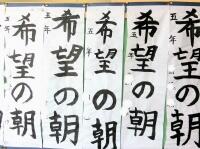 希望の朝
五年
希望の朝
五年
希望の朝
五年
希望の朝
五年
希望の朝
五年